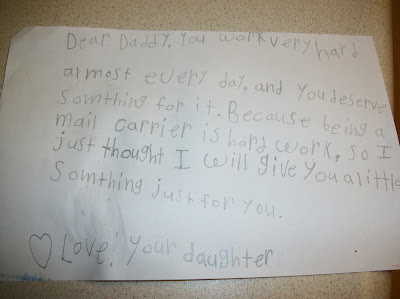 Dear Daddy, You work very hard
armost every day, and You deserve
Somthing for it. Because being a
mail carrier is hard work, so I
just thought I will give You a little
Somthing just for you.
♡ Love! Your daughter